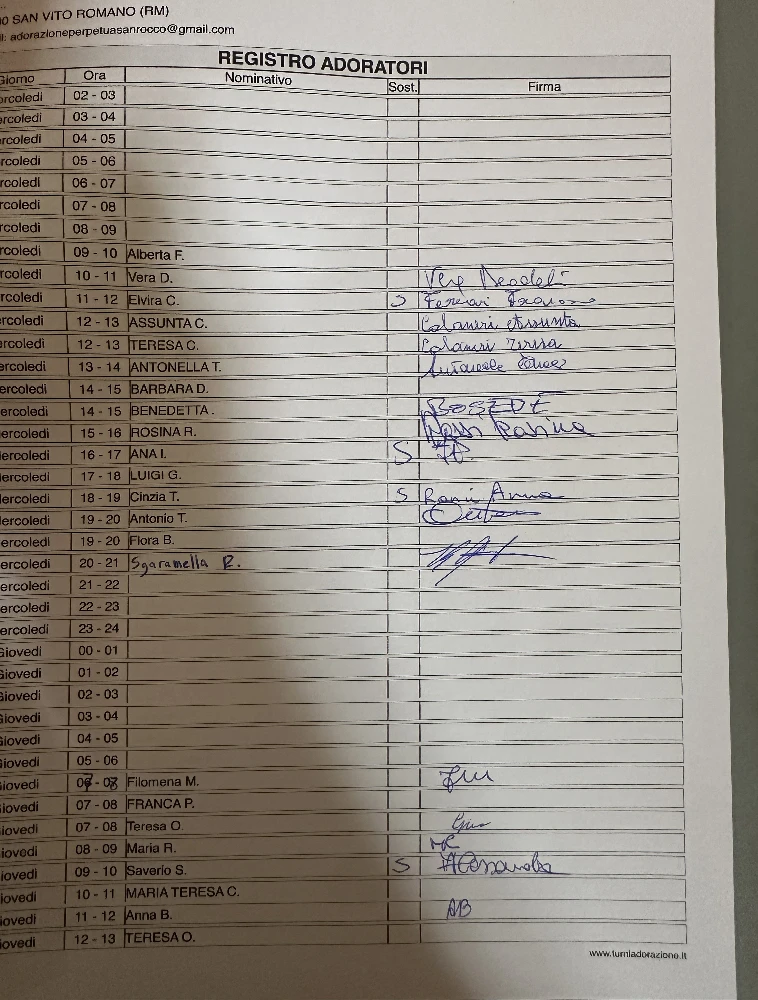 SAN VITO ROMANO (RM)
adorazioneperpetuasanrocco@gmail.com
REGISTRO ADORATORI
Giorno Ora Nominativo Sost. Firma
ercoledi 02 - 03
ercoledi 03 - 04
rcoledi 04 - 05
rcoledi 05 - 06
rcoledi 06 - 07
rcoledi 07 - 08
rcoledi 08 - 09
rcoledi 09 - 10 Alberta F.
rcoledi 10 - 11 Vera D.
rcoledi 11 - 12 Elvira C. S Ferrari
rcoledi 12 - 13 ASSUNTA C. Colaneri Assunta
rcoledi 12 - 13 TERESA C. Colaneri Teresa
ercoledi 13 - 14 ANTONELLA T.
ercoledi 14 - 15 BARBARA D.
ercoledi 14 - 15 BENEDETTA .
ercoledi 15 - 16 ROSINA R. Rosina
ercoledi 16 - 17 ANA I. S
ercoledi 17 - 18 LUIGI G.
ercoledi 18 - 19 Cinzia T. S Anna
ercoledi 19 - 20 Antonio T.
ercoledi 19 - 20 Flora B.
ercoledi 20 - 21 Sgaramella R.
ercoledi 21 - 22
ercoledi 22 - 23
ercoledi 23 - 24
Giovedi 00 - 01
Giovedi 01 - 02
Giovedi 02 - 03
Giovedi 03 - 04
Giovedi 04 - 05
Giovedi 05 - 06
Giovedi 07 - 08 Filomena M.
Giovedi 07 - 08 FRANCA P.
Giovedi 07 - 08 Teresa O.
iovedi 08 - 09 Maria R. MR
iovedi 09 - 10 Saverio S. S Alessandra
iovedi 10 - 11 MARIA TERESA C.
iovedi 11 - 12 Anna B. AB
iovedi 12 - 13 TERESA O.
www.turniadorazione.it